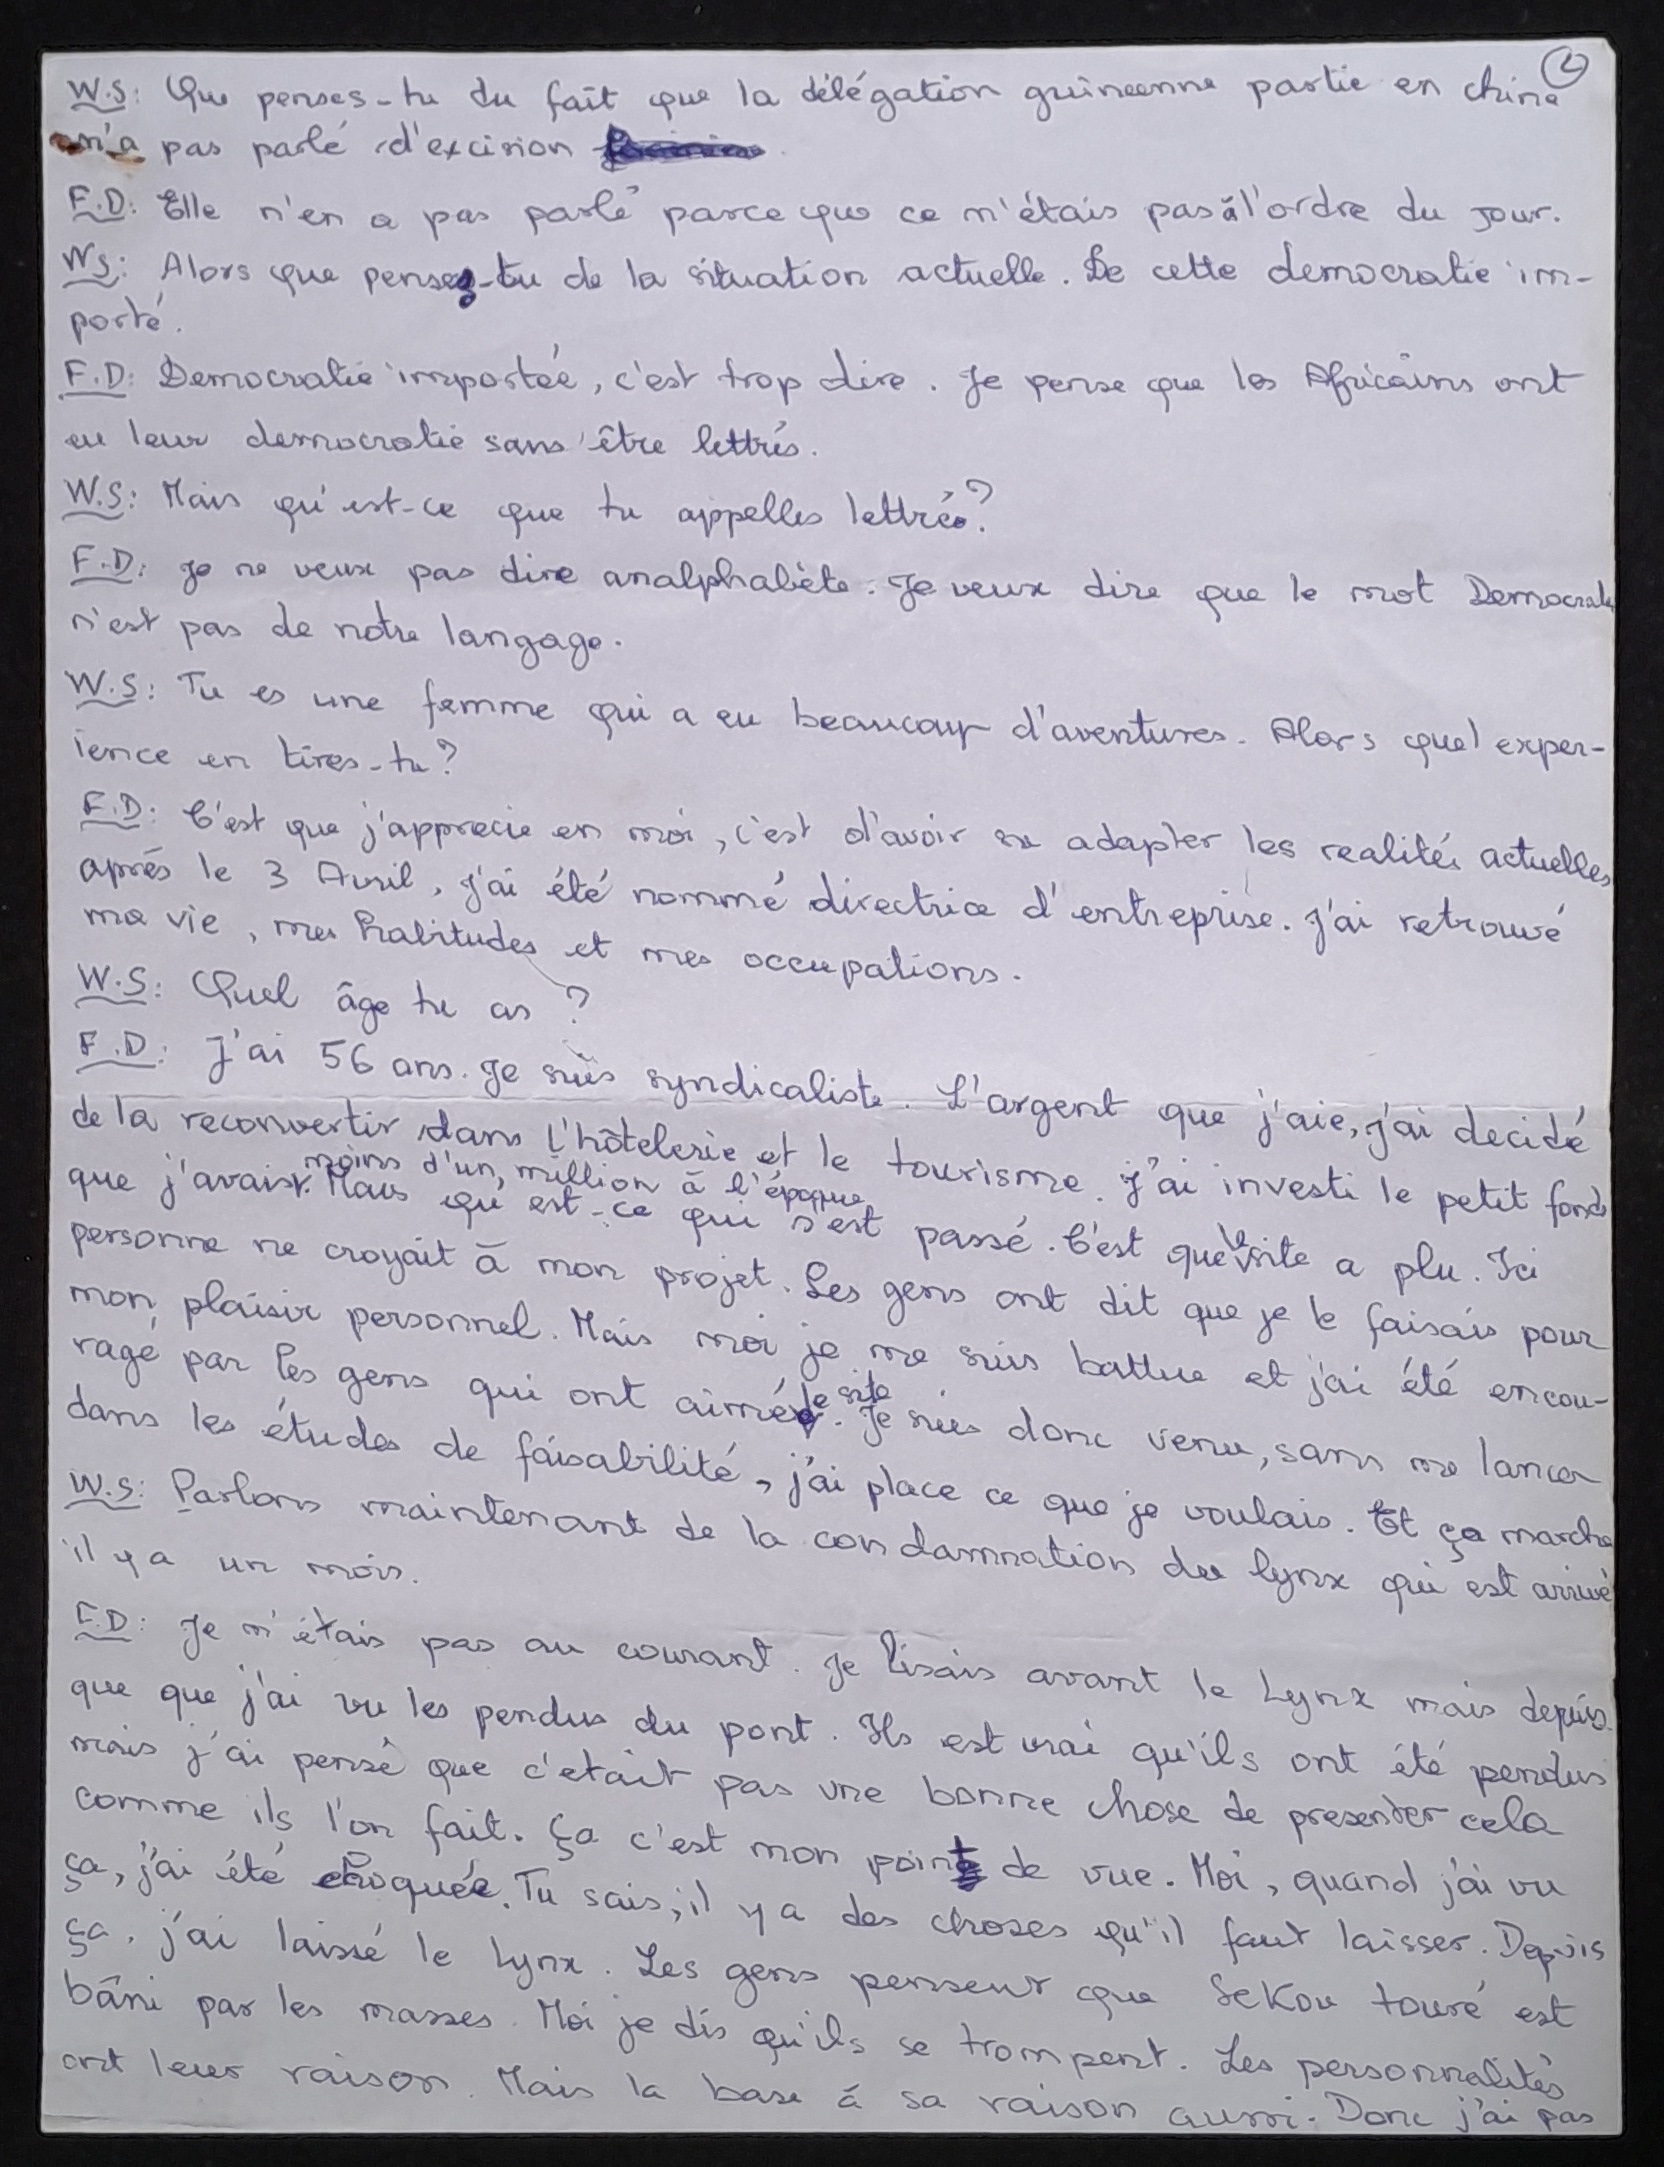 W.S: Que penses-tu du fait que la délégation guineenne partie en chine
n'a pas parlé d'excision
F.D: Elle n'en a pas parlé parce que ce n'étais pas à l'ordre du jour.
WS: Alors que penses-tu de la situation actuelle. De cette democratie im-
porté.
F.D: Democratie importée, c'est trop dire. Je pense que les Africains ont
eu leur democratie sans être lettrés.
W.S: Mais qu'est-ce que tu appelles lettrés?
F.D: Je ne veux pas dire analphabète. Je veux dire que le mot Democratie
n'est pas de notre langage.
W.S: Tu es une femme qui a eu beaucoup d'aventures. Alors quel exper-
ience en tires-tu?
F.D: C'est que j'apprecie en moi, c'est d'avoir su adapter les realités actuelles
après le 3 Avril, j'ai été nommé directrice d'entreprise. J'ai retrouvé
ma vie, mes habitudes et mes occupations.
W.S: Quel âge tu as ?
F.D: J'ai 56 ans. Je suis syndicaliste. L'argent que j'aie, j'ai decidé
de la reconvertir dans l'hôtelerie et le tourisme. J'ai investi le petit fonds
que j'avais moins d'un million à l'époque. Mais qu'est-ce qui s'est passé. C'est que le site a plu. Ici
personne ne croyait à mon projet. Les gens ont dit que je le faisais pour
mon plaisir personnel. Mais moi je me suis battue et j'ai été encou-
ragé par les gens qui ont aimé le site. Je suis donc venu, sans me lancer
dans les études de faisabilité, j'ai place ce que je voulais. Et ça marche
W.S: Parlons maintenant de la condamnation du lynx qui est arrivé
il y a un mois.
F.D: Je n'étais pas au courant. Je lisais avant le Lynx mais depuis
que que j'ai vu les pendus du pont. Ils est vrai qu'ils ont été pendus
mais j'ai pensé que c'etait pas une bonne chose de presenter cela
comme ils l'on fait. Ça c'est mon point de vue. Moi, quand j'ai vu
ça, j'ai été choquée. Tu sais, il y a des choses qu'il faut laisser. Depuis
ça, j'ai laissé le Lynx. Les gens penseur que Sekou touré est
bâni par les masses. Moi je dis qu'ils se trompent. Les personnalités
ont leur raison. Mais la base à sa raison aussi. Donc j'ai pas